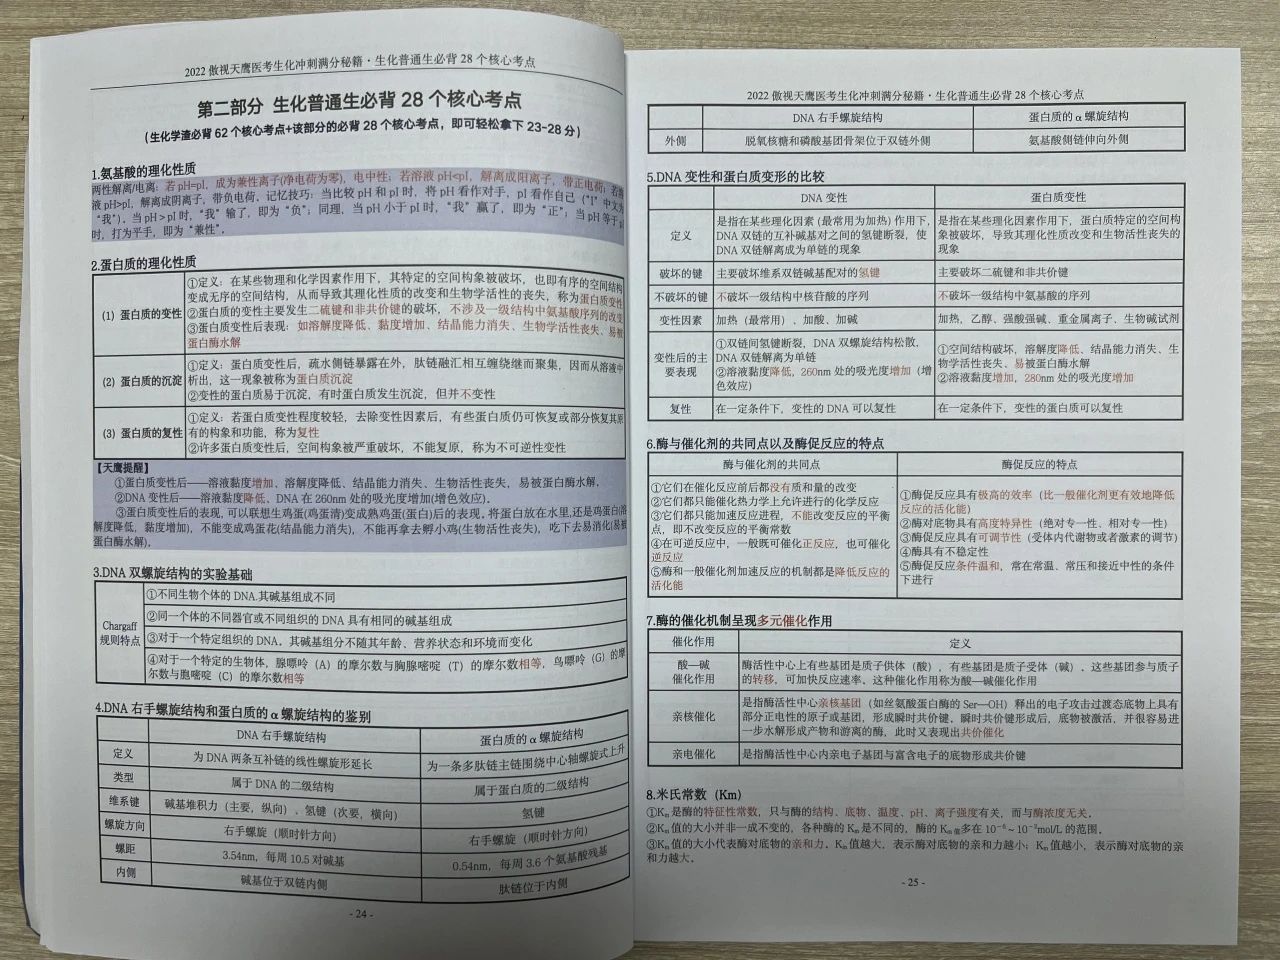 2022 傲视天鹰医考生化冲刺满分秘籍·生化普通生必背 28 个核心考点
第二部分 生化普通生必背 28 个核心考点
(生化学渣必背 62 个核心考点+该部分的必背 28 个核心考点，即可轻松拿下 23-28 分)
1.氨基酸的理化性质
两性解离/电离：若 pH=pI，成为兼性离子(净电荷为零)，电中性；若溶液 pH<pI，解离成阳离子，带正电荷；若溶
液 pH>pI，解离成阴离子，带负电荷。记忆技巧：当比较 pH 和 pI 时，将 pH 看作对手，pI 看作自己（“I”中文为
“我”)，当 pH＞pI 时，“我”输了，即为“负”；同理，当 pH 小于 pI 时，“我”赢了，即为“正”；当 pH 等于
时，打为平手，即为“兼性”。
2.蛋白质的理化性质
(1) 蛋白质的变性
①定义：在某些物理和化学因素作用下，其特定的空间构象被破坏，也即有序的空间结构
变成无序的空间结构，从而导致其理化性质的改变和生物学活性的丧失，称为蛋白质变性
②蛋白质的变性主要发生二硫键和非共价键的破坏，不涉及一级结构中氨基酸序列的改变
③蛋白质变性后表现：如溶解度降低、黏度增加、结晶能力消失、生物学活性丧失、易被
蛋白酶水解
(2) 蛋白质的沉淀
①定义：蛋白质变性后，疏水侧链暴露在外，肽链融汇相互缠绕继而聚集，因而从溶液中
析出，这一现象被称为蛋白质沉淀
②变性的蛋白质易于沉淀，有时蛋白质发生沉淀，但并不变性
(3) 蛋白质的复性
①定义：若蛋白质变性程度较轻，去除变性因素后，有些蛋白质仍可恢复或部分恢复其原
有的构象和功能，称为复性
②许多蛋白质变性后，空间构象被严重破坏，不能复原，称为不可逆性变性
【天鹰提醒】
①蛋白质变性后——溶液黏度增加、溶解度降低、结晶能力消失、生物活性丧失，易被蛋白酶水解。
②DNA 变性后——溶液黏度降低、DNA 在 260nm 处的吸光度增加(增色效应)。
③蛋白质变性后的表现，可以联想生鸡蛋(鸡蛋清)变成熟鸡蛋(蛋白)后的表现。将蛋白放在水里,还是鸡蛋白(溶
解度降低，黏度增加)，不能变成鸡蛋花(结晶能力消失)，不能再拿去孵小鸡(生物活性丧失)，吃下去易消化(易被
蛋白酶水解)。
3.DNA 双螺旋结构的实验基础
Chargaff
规则特点
①不同生物个体的 DNA,其碱基组成不同
②同一个体的不同器官或不同组织的 DNA 具有相同的碱基组成
③对于一个特定组织的 DNA，其碱基组分不随其年龄、营养状态和环境而变化
④对于一个特定的生物体，腺嘌呤（A）的摩尔数与胸腺嘧啶（T）的摩尔数相等，鸟嘌呤（G）的摩
尔数与胞嘧啶（C）的摩尔数相等
4.DNA 右手螺旋结构和蛋白质的 α 螺旋结构的鉴别
DNA 右手螺旋结构 蛋白质的 α 螺旋结构
定义 为 DNA 两条互补链的线性螺旋形延长 为一条多肽链主链围绕中心轴螺旋式上升
类型 属于 DNA 的二级结构 属于蛋白质的二级结构
维系键 碱基堆积力（主要，纵向）、氢键（次要，横向） 氢键
螺旋方向 右手螺旋（顺时针方向） 右手螺旋（顺时针方向）
螺距 3.54nm，每周 10.5 对碱基 0.54nm，每周 3.6 个氨基酸残基
内侧 碱基位于双链内侧 肽链位于内侧
- 24 -
2022 傲视天鹰医考生化冲刺满分秘籍·生化普通生必背 28 个核心考点
DNA 右手螺旋结构 蛋白质的 α 螺旋结构
外侧 脱氧核糖和磷酸基团骨架位于双链外侧 氨基酸侧链伸向外侧
5.DNA 变性和蛋白质变形的比较
DNA 变性 蛋白质变性
定义
是指在某些理化因素 (最常用为加热) 作用下，
DNA 双链的互补碱基对之间的氢键断裂，使
DNA 双链解离成为单链的现象
是指在某些理化因素作用下，蛋白质特定的空间构
象被破坏，导致其理化性质改变和生物活性丧失的
现象
破坏的键 主要破坏维系双链碱基配对的氢键 主要破坏二硫键和非共价键
不破坏的键 不破坏一级结构中核苷酸的序列 不破坏一级结构中氨基酸的序列
变性因素 加热（最常用）、加酸、加碱 加热，乙醇、强酸强碱、重金属离子、生物碱试剂
变性后的主
要表现
①双链间氢键断裂，DNA 双螺旋结构松散，
DNA 双链解离为单链
②溶液黏度降低，260nm 处的吸光度增加（增
色效应）
①空间结构破坏，溶解度降低、结晶能力消失、生
物学活性丧失、易被蛋白酶水解
②溶液黏度增加，280nm 处的吸光度增加
复性 在一定条件下，变性的 DNA 可以复性 在一定条件下，变性的蛋白质可以复性
6.酶与催化剂的共同点以及酶促反应的特点
酶与催化剂的共同点 酶促反应的特点
①它们在催化反应前后都没有质和量的改变
②它们都只能催化热力学上允许进行的化学反应
③它们都只能加速反应进程，不能改变反应的平衡
点，即不改变反应的平衡常数
④在可逆反应中，一般既可催化正反应，也可催化
逆反应
⑤酶和一般催化剂加速反应的机制都是降低反应的
活化能
①酶促反应具有极高的效率（比一般催化剂更有效地降低
反应的活化能）
②酶对底物具有高度特异性（绝对专一性、相对专一性）
③酶促反应具有可调节性（受体内代谢物或者激素的调节）
④酶具有不稳定性
⑤酶促反应条件温和，常在常温、常压和接近中性的条件
下进行
7.酶的催化机制呈现多元催化作用
催化作用 定义
酸—碱
催化作用
酶活性中心上有些基团是质子供体（酸），有些基团是质子受体（碱）、这些基团参与质子
的转移，可加快反应速率、这种催化作用称为酸—碱催化作用
亲核催化
是指酶活性中心亲核基团（如丝氨酸蛋白酶的 Ser—OH）释出的电子攻击过渡态底物上具有
部分正电性的原子或基团，形成瞬时共价键、瞬时共价键形成后，底物被激活，并很容易进
一步水解形成产物和游离的酶，此时又表现出共价催化
亲电催化 是指酶活性中心内亲电子基团与富含电子的底物形成共价键
8.米氏常数（Km）
①Kₘ 是酶的特征性常数，只与酶的结构、底物、温度、pH、离子强度有关，而与酶浓度无关。
②Kₘ 值的大小并非一成不变的，各种酶的 Kₘ 是不同的，酶的 Kₘ值多在 10⁻⁶～10⁻²mol/L 的范围。
③Kₘ 值的大小代表酶对底物的亲和力，Kₘ值越大，表示酶对底物的亲和力越小；Kₘ值越小，表示酶对底物的亲
和力越大。
- 25 -